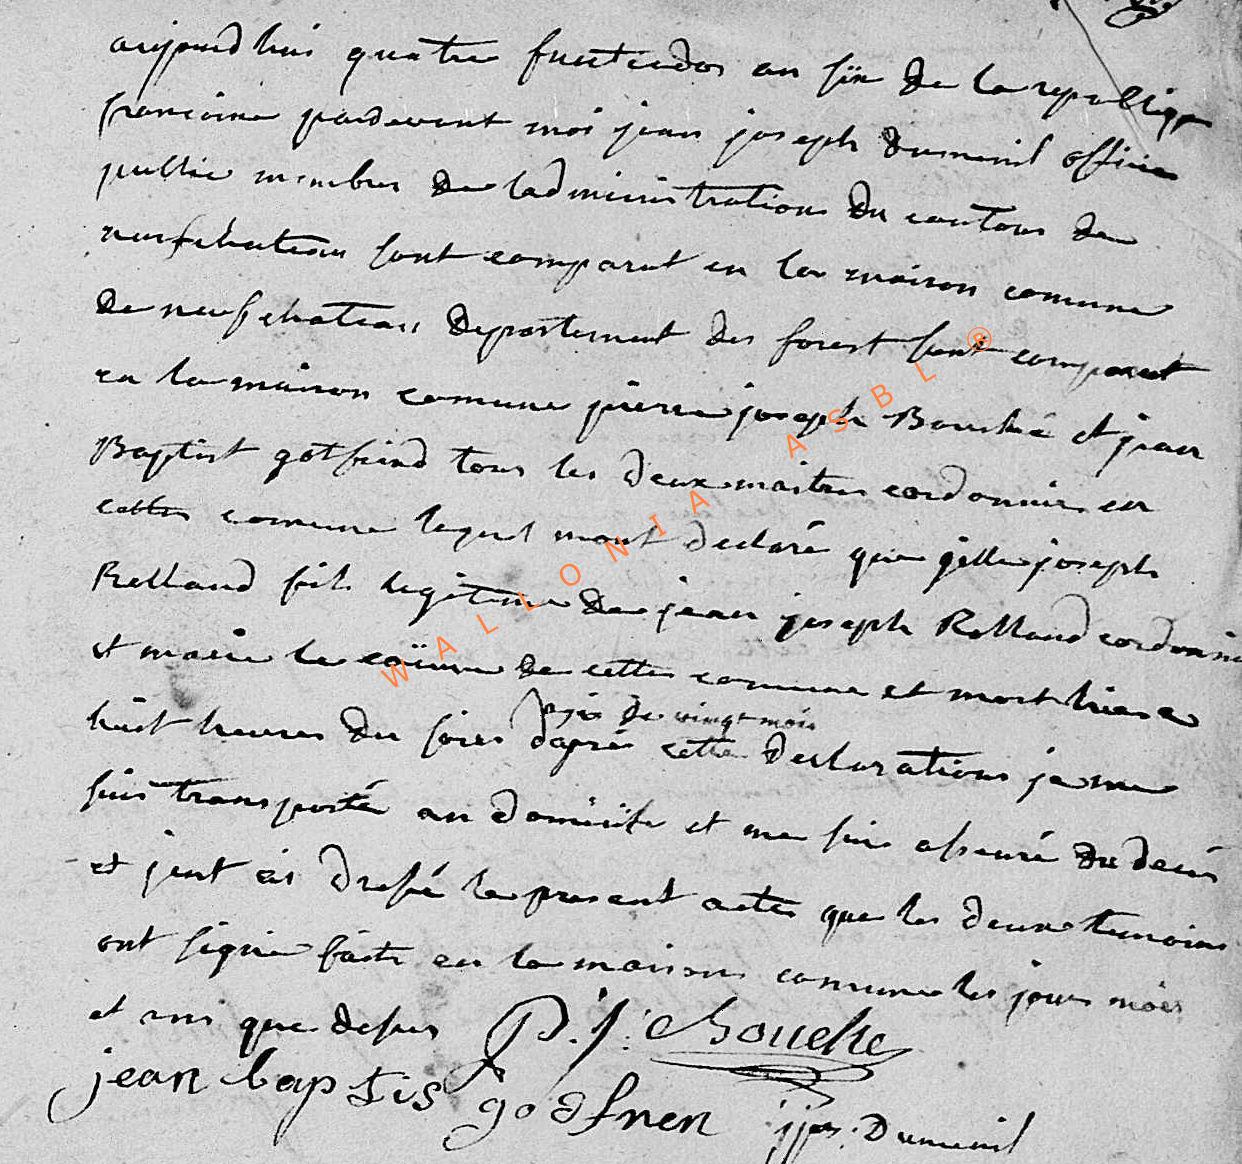 aujourdhui quatre fructidor an six de la republique
francoise pardevant moi jean joseph dumenil officier
public membres de ladministrations du cantons de
neufchateau sont comparut en la maison comune
de neufchateau departement des forest sont comparut
en la maison comune pierre joseph Bouché et jean
Baptist gotfrind tous les deux maitres cordonniers en
cettes comune lequel mont declaré que gille joseph
Rolland fils legitime de jean joseph Rolland cordonnier
et marie le de cettes comune et mort hiere a
agé de vingt mois
huit heures du soires daprés cette declarations je me
suis transportés au domicile et me suis assuré du decés
et jent ais dressé le present actes que les deux temoins
ont signé faite en la maisons comune les jours mois
et ans que dessus P. J. Bouché
jean baptis godfrien
jjos. Dumenil
WALLONIA ASBL ®